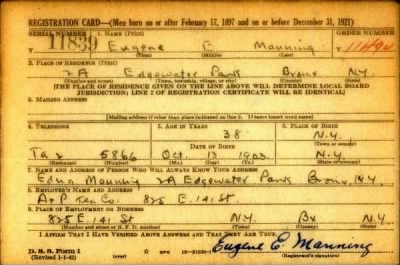 REGISTRATION CARD—(Men born on or after February 17, 1897 and on or before December 31, 1921)
SERIAL NUMBER 1. NAME (Print) ORDER NUMBER
T 11839 Eugene E Manning T 11490
(First) (Middle) (Last)
2. PLACE OF RESIDENCE (Print)
2A Edgewater Park Bronx N.Y.
(Number and street) (Town, township, village, or city) (County) (State)
[THE PLACE OF RESIDENCE GIVEN ON THE LINE ABOVE WILL DETERMINE LOCAL BOARD
JURISDICTION; LINE 2 OF REGISTRATION CERTIFICATE WILL BE IDENTICAL]
3. MAILING ADDRESS
[Mailing address if other than place indicated on line 2. If same insert word same]
4. TELEPHONE 5. AGE IN YEARS 6. PLACE OF BIRTH
38 N.Y.
DATE OF BIRTH (Town or county)
Ta 2 5866 Oct. 13 1903 N.Y.
(Exchange) (Number) (Mo.) (Day) (Yr.) (State or country)
7. NAME AND ADDRESS OF PERSON WHO WILL ALWAYS KNOW YOUR ADDRESS
Edna Manning 2A Edgewater Park Bronx, N.Y.
8. EMPLOYER'S NAME AND ADDRESS
A & P Tea Co. 825 E. 141 St
9. PLACE OF EMPLOYMENT OR BUSINESS
825 E. 141 St N.Y. Bx N.Y.
(Number and street or R. F. D. number) (Town) (County) (State)
I AFFIRM THAT I HAVE VERIFIED ABOVE ANSWERS AND THAT THEY ARE TRUE.
D. S. S. Form 1
(Revised 1-1-42) (over)
Eugene E. Manning
(Registrant's signature)